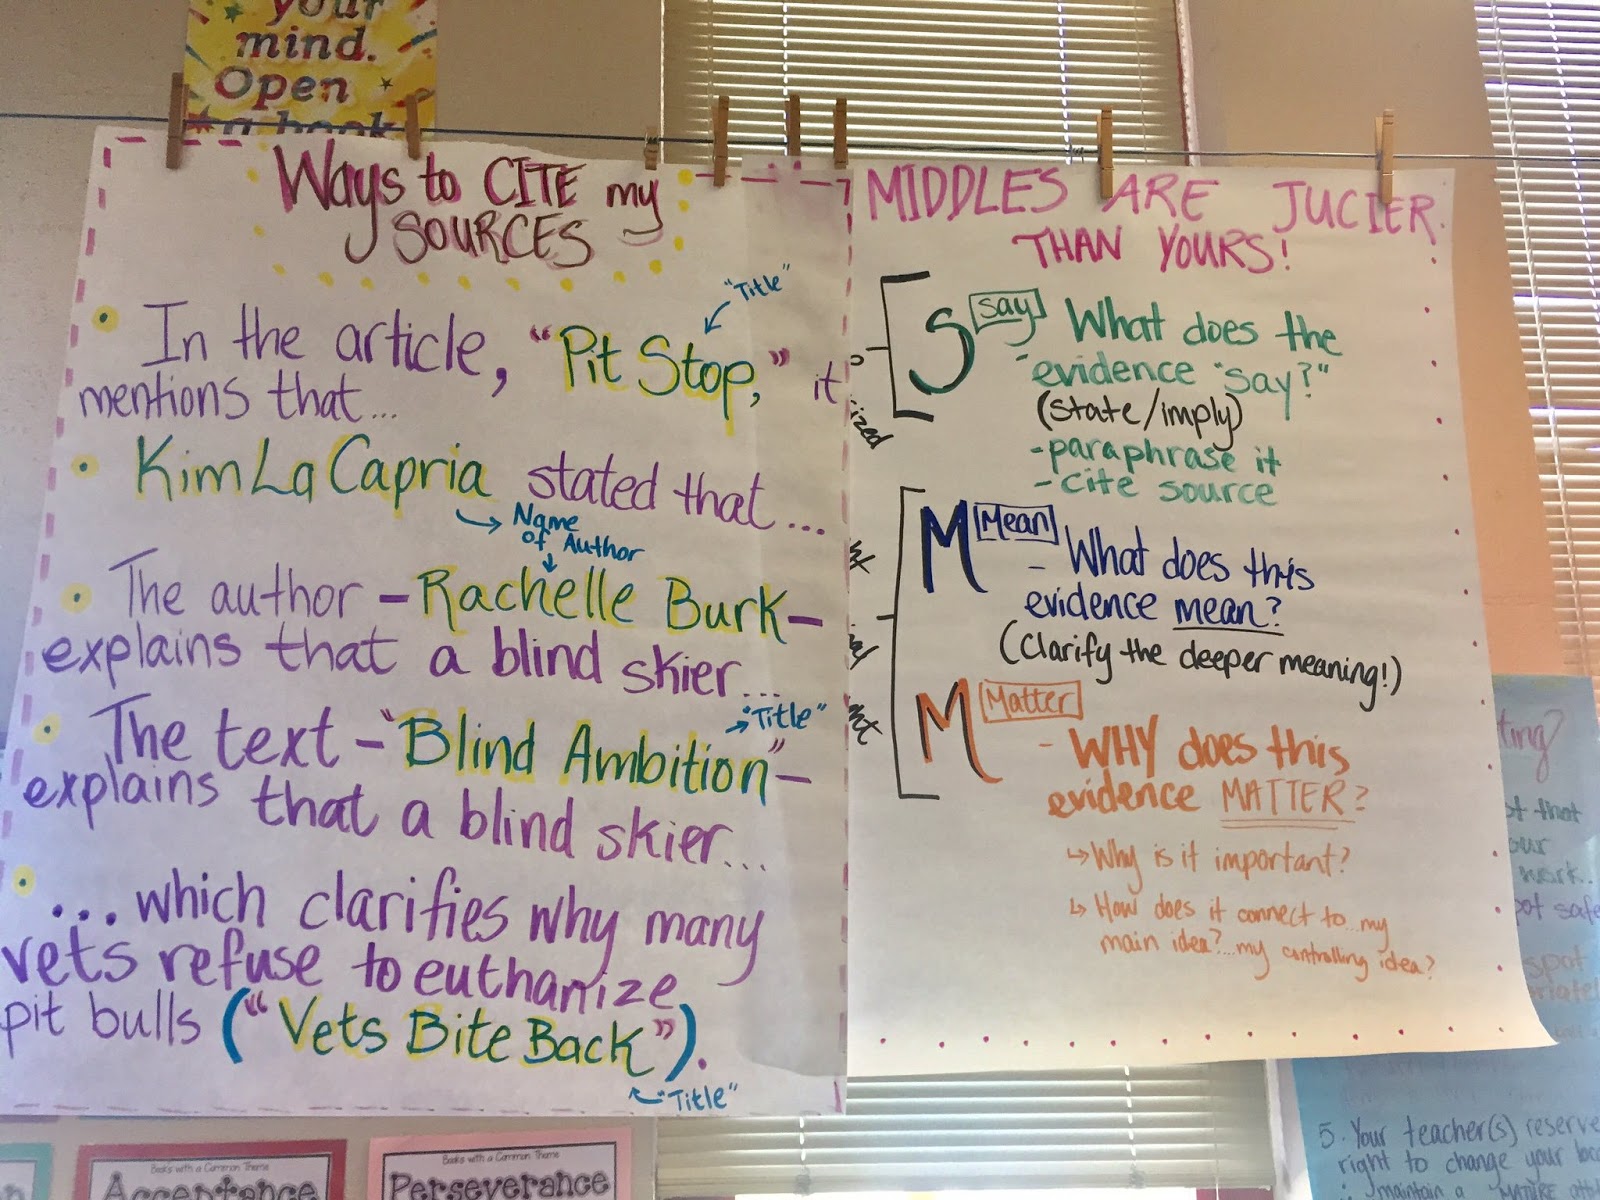 your
mind.
Open
a book
Ways to CITE my
SOURCES
"Title"
• In the article, "Pit Stop," it
mentions that...
• Kim La Capria stated that...
Name
of Author
• The author - Rachelle Burk -
explains that a blind skier...
"Title"
• The text - "Blind Ambition" -
explains that a blind skier...
• ...which clarifies why many
vets refuse to euthanize
pit bulls ("Vets Bite Back").
"Title"
MIDDLES ARE JUCIER
THAN YOURS!
S say - What does the
evidence "say?"
(state/imply)
- paraphrase it
- cite source
M Mean - What does this
evidence mean?
(Clarify the deeper meaning!)
M Matter
- WHY does this
evidence MATTER?
↳ Why is it important?
↳ How does it connect to...my
main idea?...my controlling idea?
ized
ting?
that
work.
safe
spot
5. Your teacher(s) reserve
right to change your
maintain a
Books with a Common Theme
Acceptance
Books with a Common Theme
Perseverance